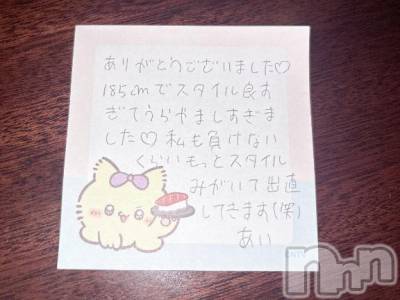 ありがとうございました♡
185cmでスタイル良す
ぎてうらやましすぎま
した♡ 私も負けない
くらいもっとスタイル
みがいて出直
してきます(笑)
あい
©NTV
ナイトナビ
nnn